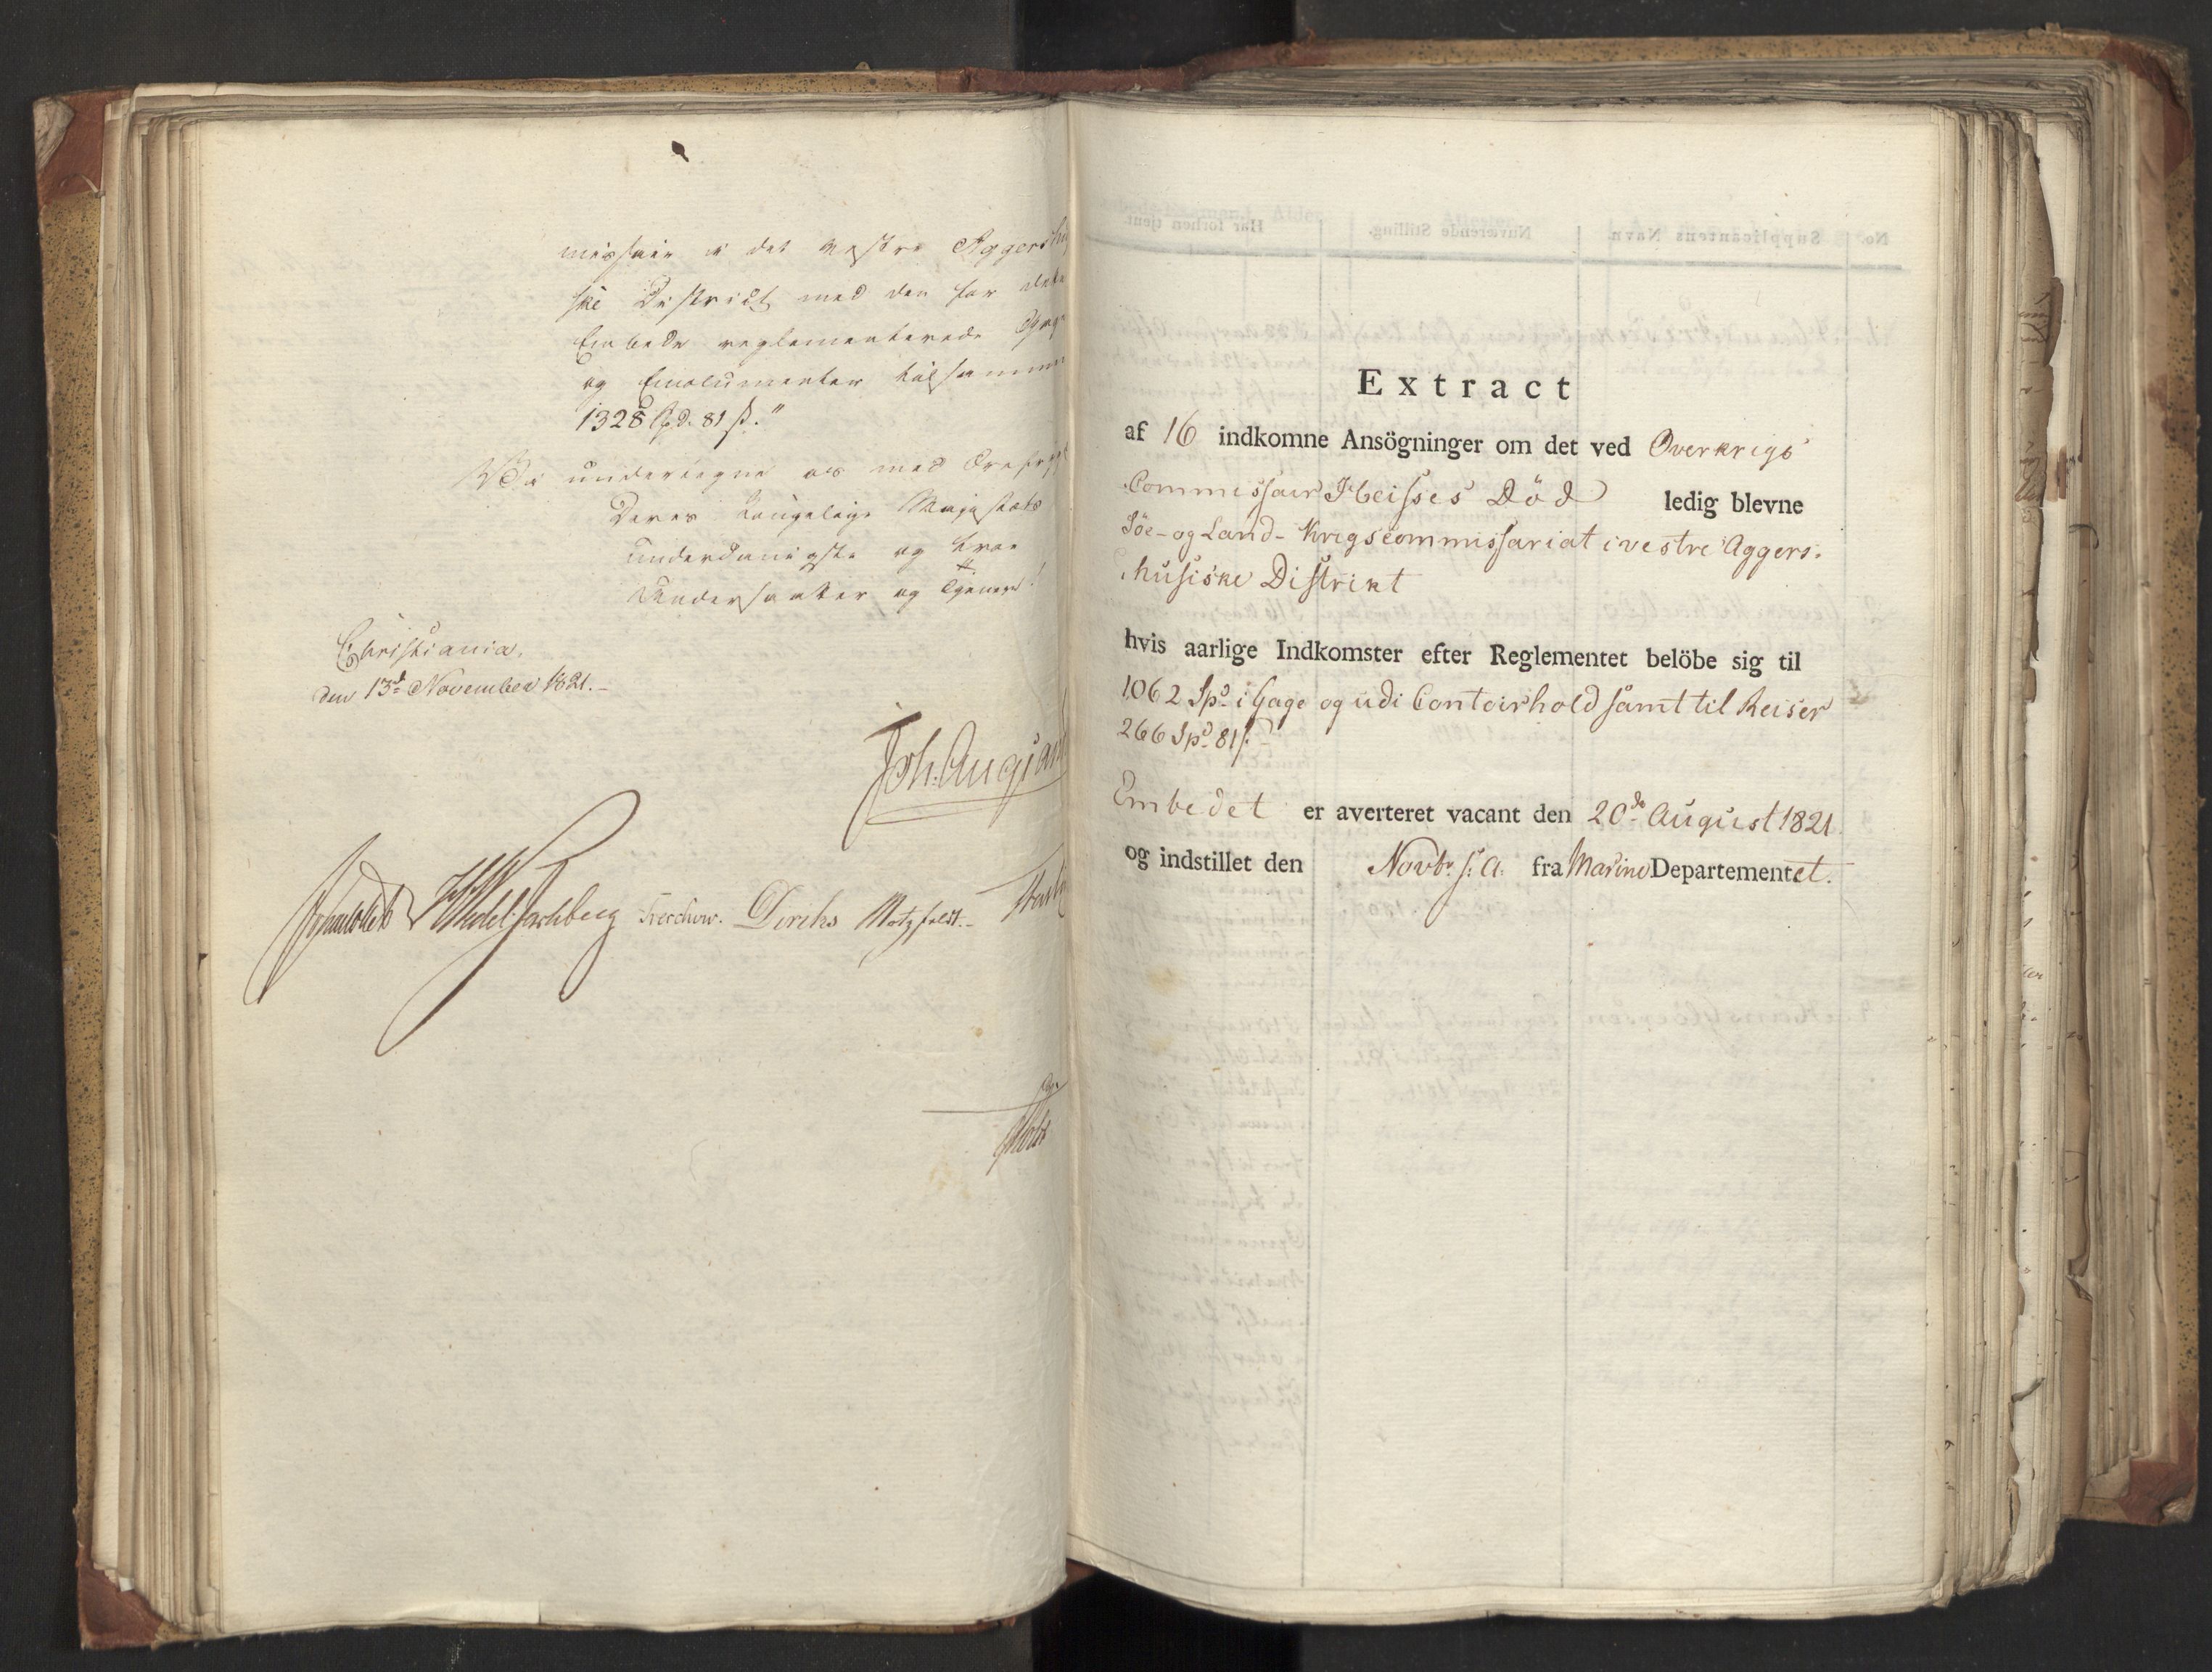 missair i det vestre Aggershu
ske District med den for dette
Embede reglementerede Gage
og Emolumenter tilsammen
1328 Spd. 81 ß."
Vi undertegne os med Ærefrygt
Deres Kongelige Majestæts
underdanigste og troe
Undersaatter og Tjenere!
Christiania,
den 13d November 1821.-
Joh. Aug: Sand
HWedel Jarlsberg Treschow. Diriks Motzfeldt.-
Extract
af 16 indkomne Ansögninger om det ved Overkrigs
Commissair Død ledig blevne
Söe- og Land- Krigscommissariat i vestre Aggers-
husiske Distrikt
hvis aarlige Indkomster efter Reglementet belöbe sig til
1062 Spd i Gage og udi Contoirhold samt til Reiser
266 Spd 81 ß.-
Embedet er averteret vacant den 20de August 1821
og indstillet den Novbr s: A. fra Marine Departementet.
No. Supplicantens Navn. Nuværende Stilling. Har forhen tjent